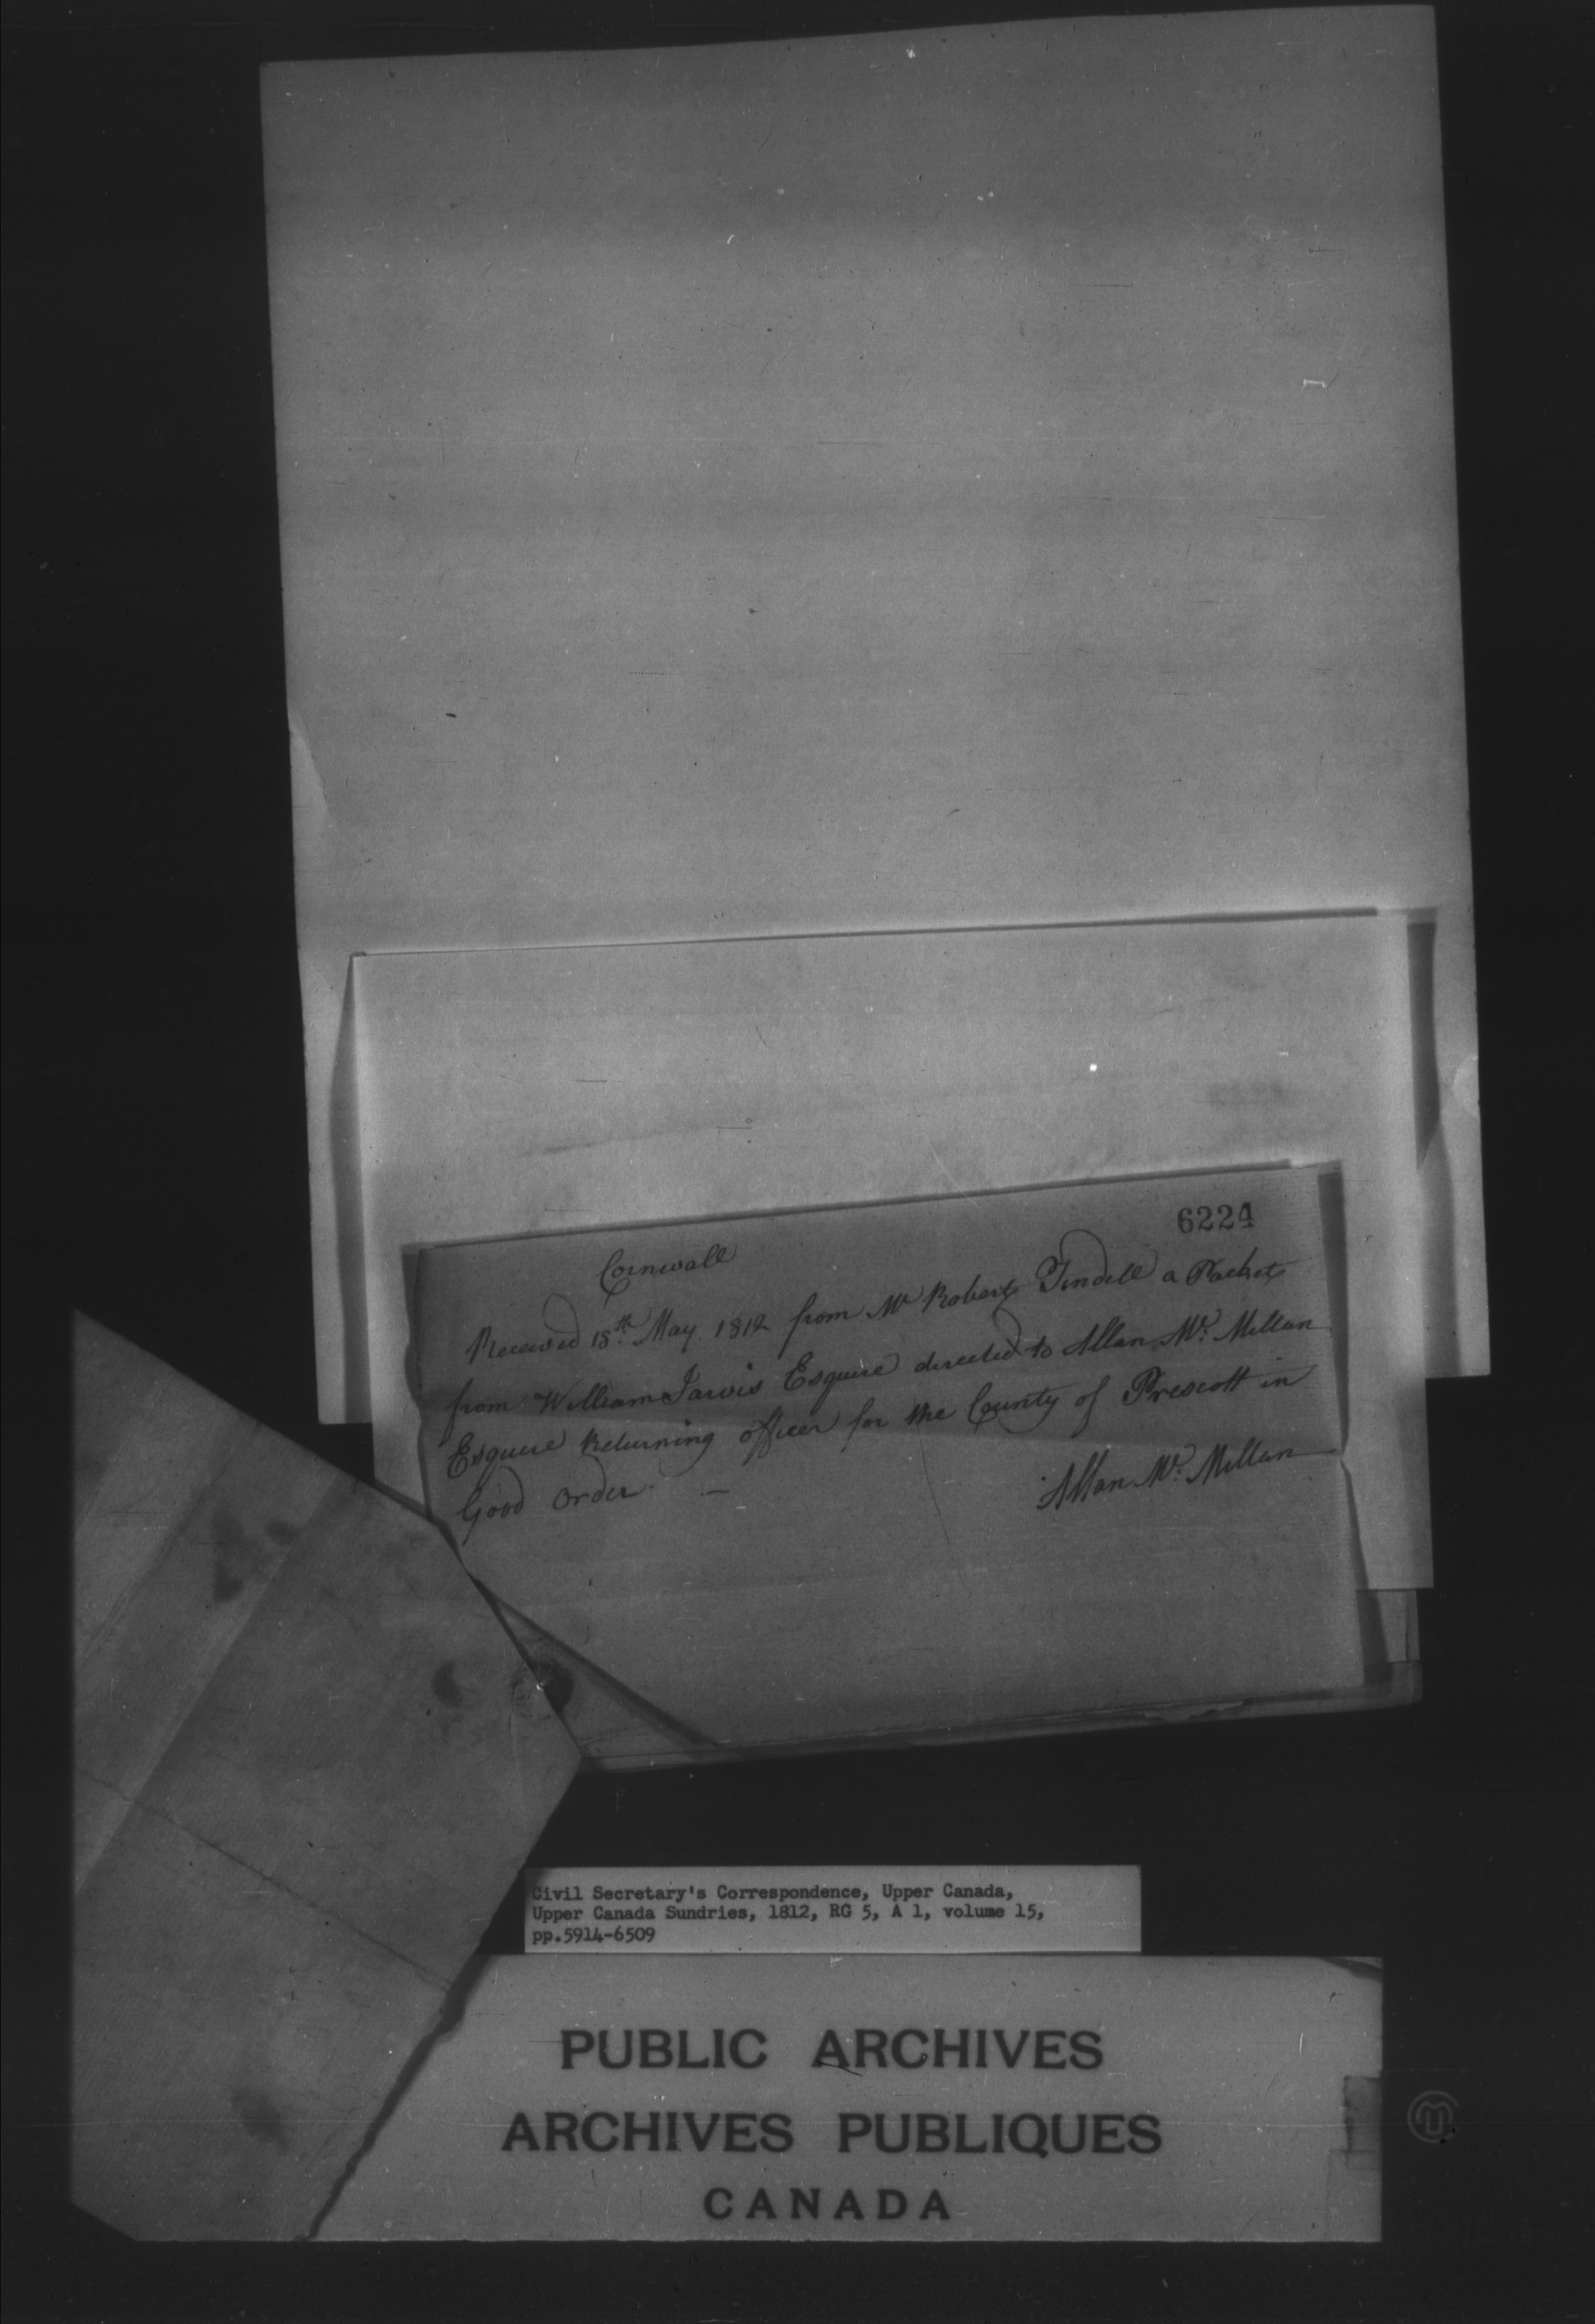 6224
Cornwall
Received 18th May 1812 from Mr Robert Tindell a Packet
from William Jarvis Esquire directed to Allan Mc Millan
Esquire Returning officer for the County of Prescott in
Good order. —
Allan Mc Millan
Civil Secretary's Correspondence, Upper Canada,
Upper Canada Sundries, 1812, RG 5, A 1, volume 15,
pp.5914-6509
PUBLIC ARCHIVES
ARCHIVES PUBLIQUES
CANADA